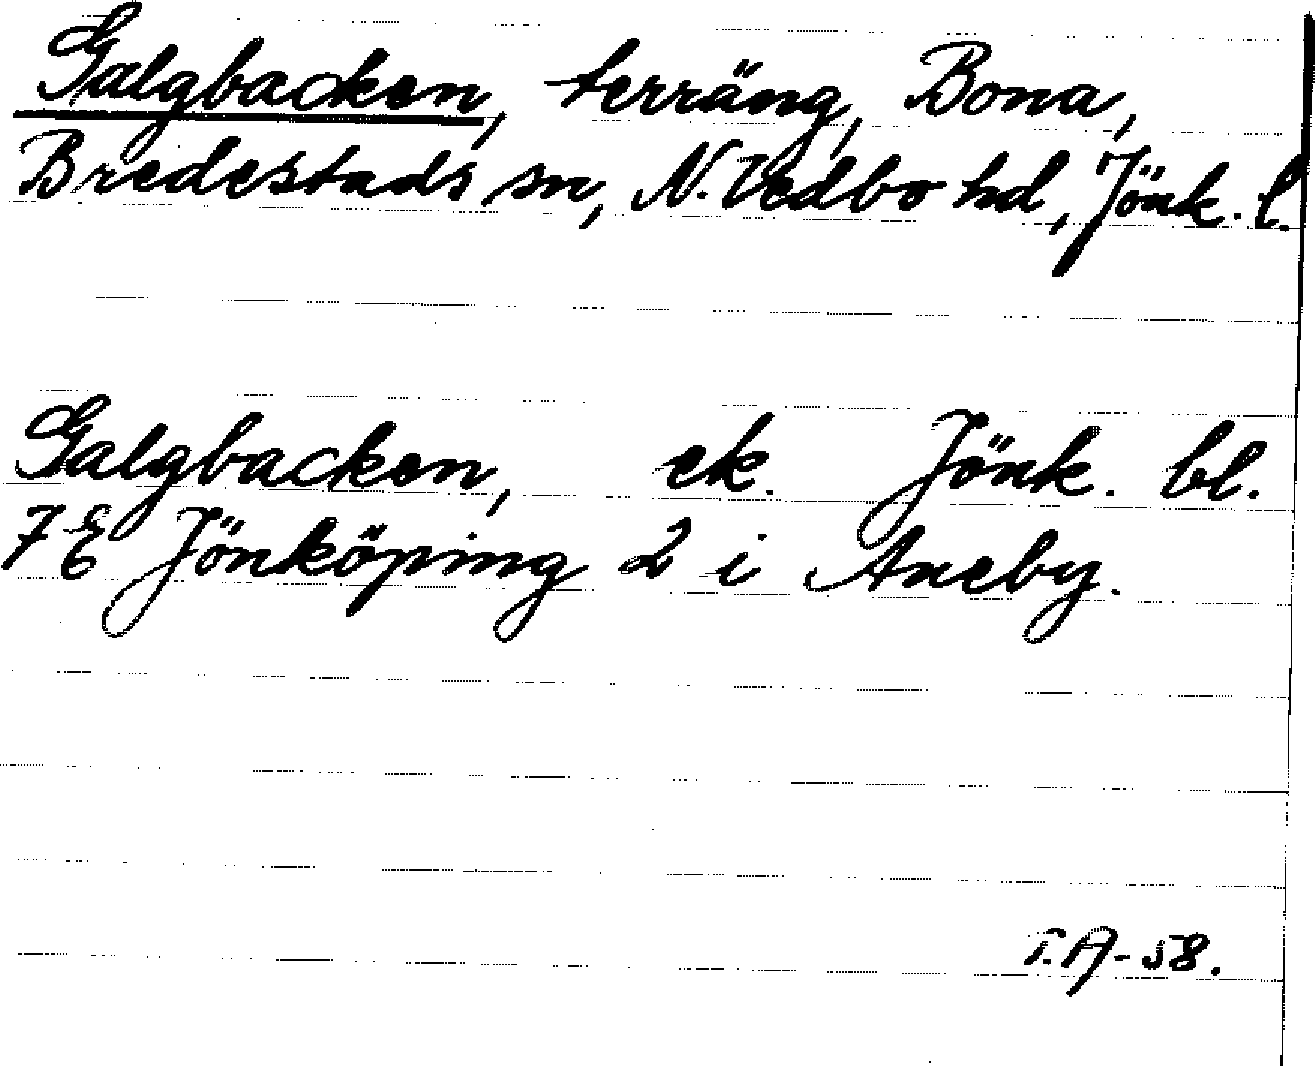 Galgbacken, terräng, Bona,
Bredestads sn, N. Vedbo hd, Jönk. l.
Galgbacken, ek. Jönk. bl.
7E Jönköping 2 i Aneby.
T.A-58.